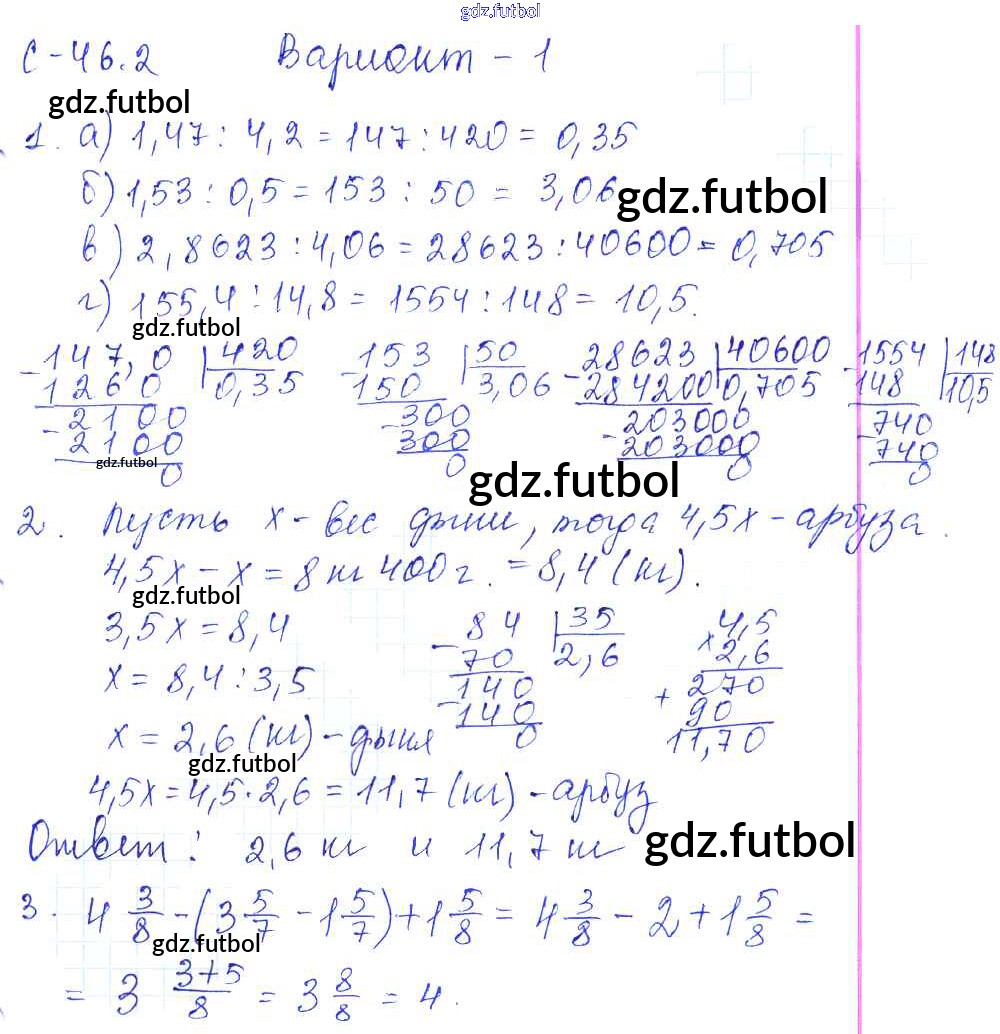 gdz.futbol
С-46.2 Вариант - 1
gdz.futbol
1. а) 1,47 : 4,2 = 147 : 420 = 0,35
б) 1,53 : 0,5 = 153 : 50 = 3,06 gdz.futbol
в) 2,8623 : 4,06 = 28623 : 40600 = 0,705
г) 155,4 : 14,8 = 1554 : 148 = 10,5.
gdz.futbol
- 147,0 | 420 - 153 | 50 - 28623 | 40600 - 1554 | 148
1260 0,35 150 3,06 284200 0,705 148 10,5
- 2100 - 300 - 203000 - 740
2100 300 203000 740
gdz.futbol 0 0 0 0
gdz.futbol
2. Пусть х - вес дыни, тогда 4,5х - арбуза.
4,5х - х = 8 кг 400 г. = 8,4 (кг).
gdz.futbol
3,5х = 8,4 - 84 | 35 × 4,5
70 2,6 2,6
х = 8,4 : 3,5 - 140 + 270
140 90
х = 2,6 (кг) - дыня 0 11,70
gdz.futbol
4,5х = 4,5 · 2,6 = 11,7 (кг) - арбуз
Ответ: 2,6 кг и 11,7 кг gdz.futbol
3. 4 3/8 - (3 5/7 - 1 5/7) + 1 5/8 = 4 3/8 - 2 + 1 5/8 =
gdz.futbol
= 3 3+5/8 = 3 8/8 = 4.